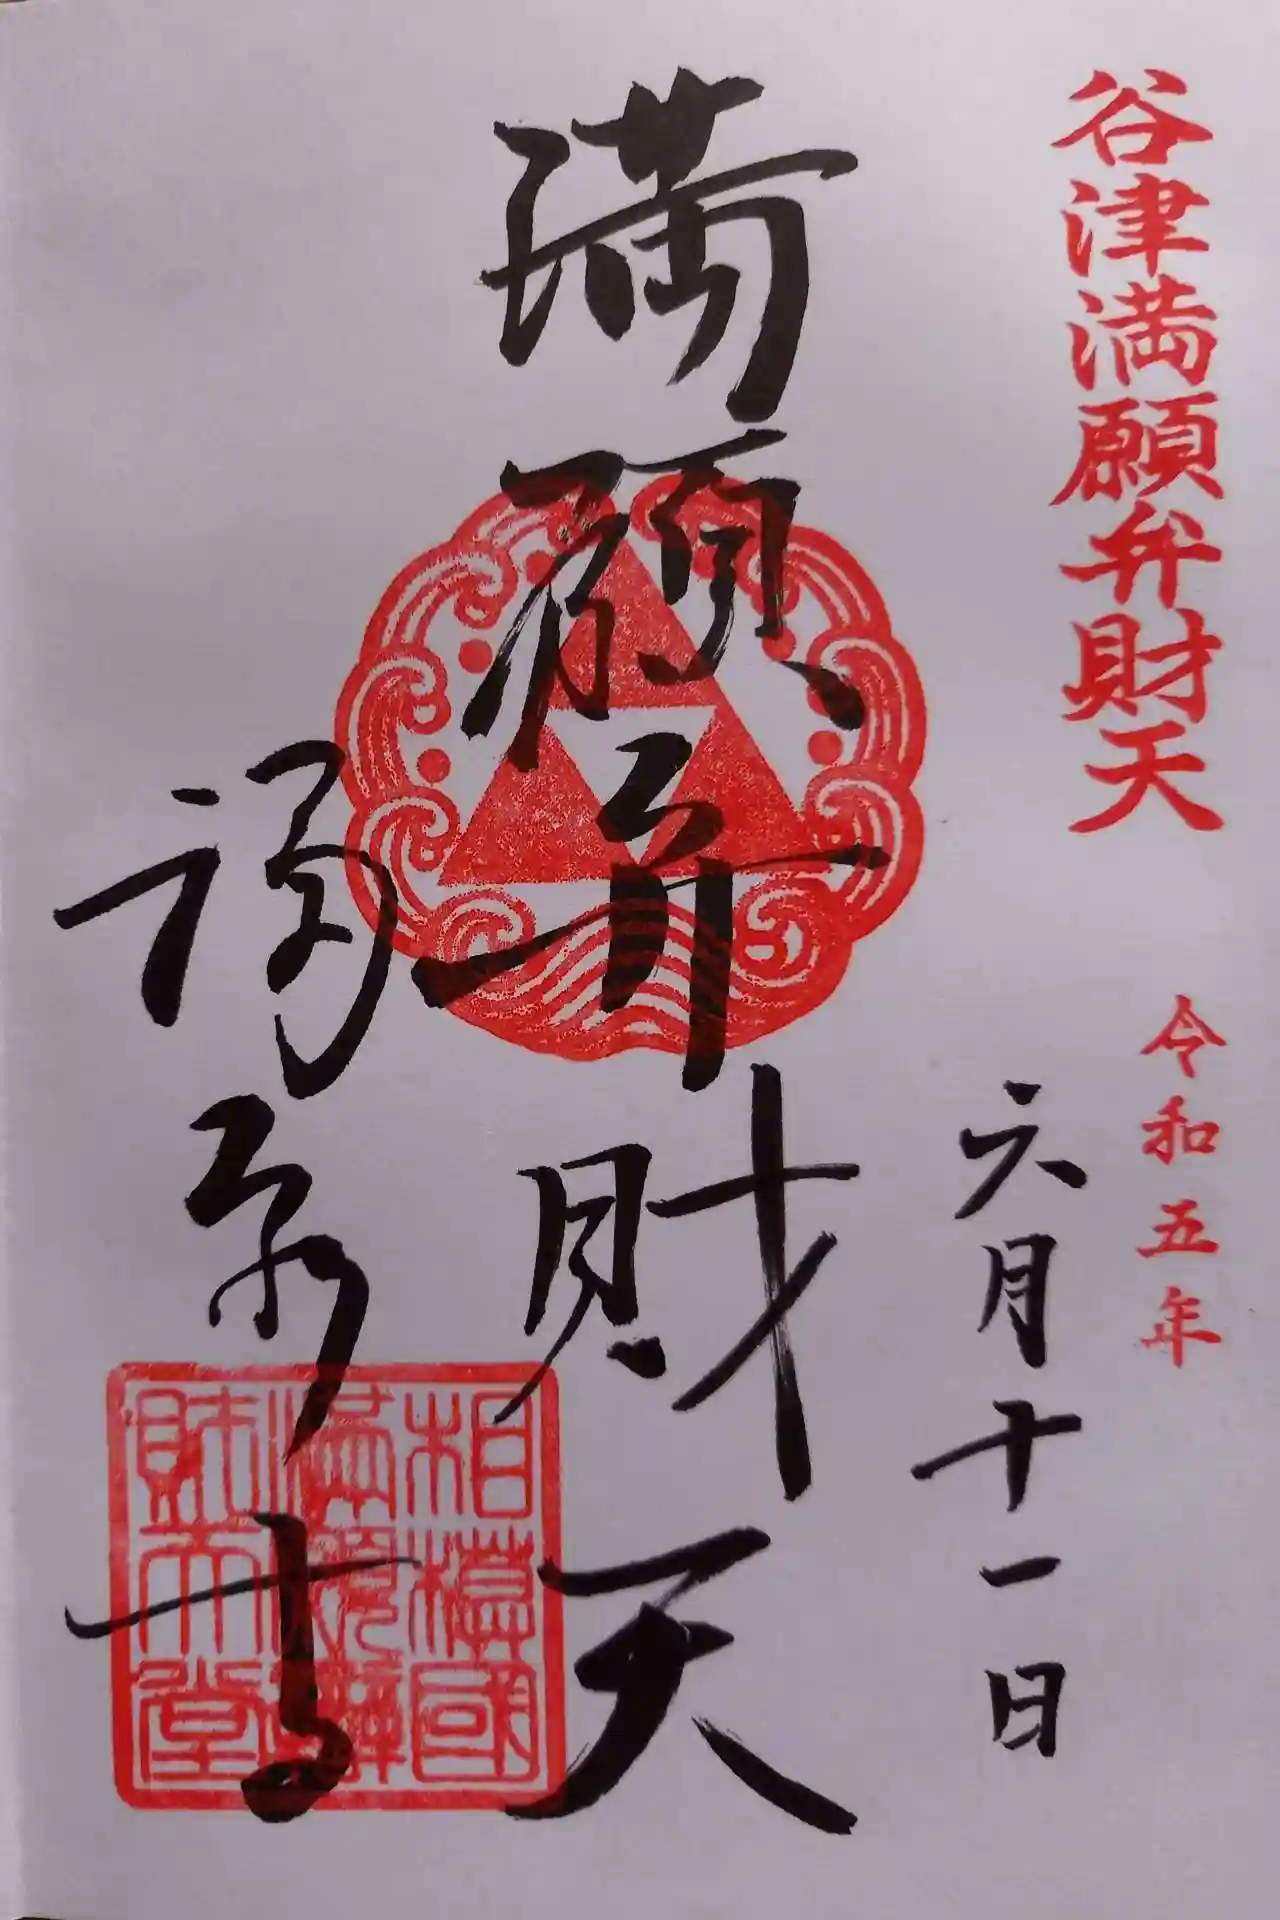 谷津満願弁財天
令和五年
六月十一日
満願弁財天
相模國
満願辨
財天堂